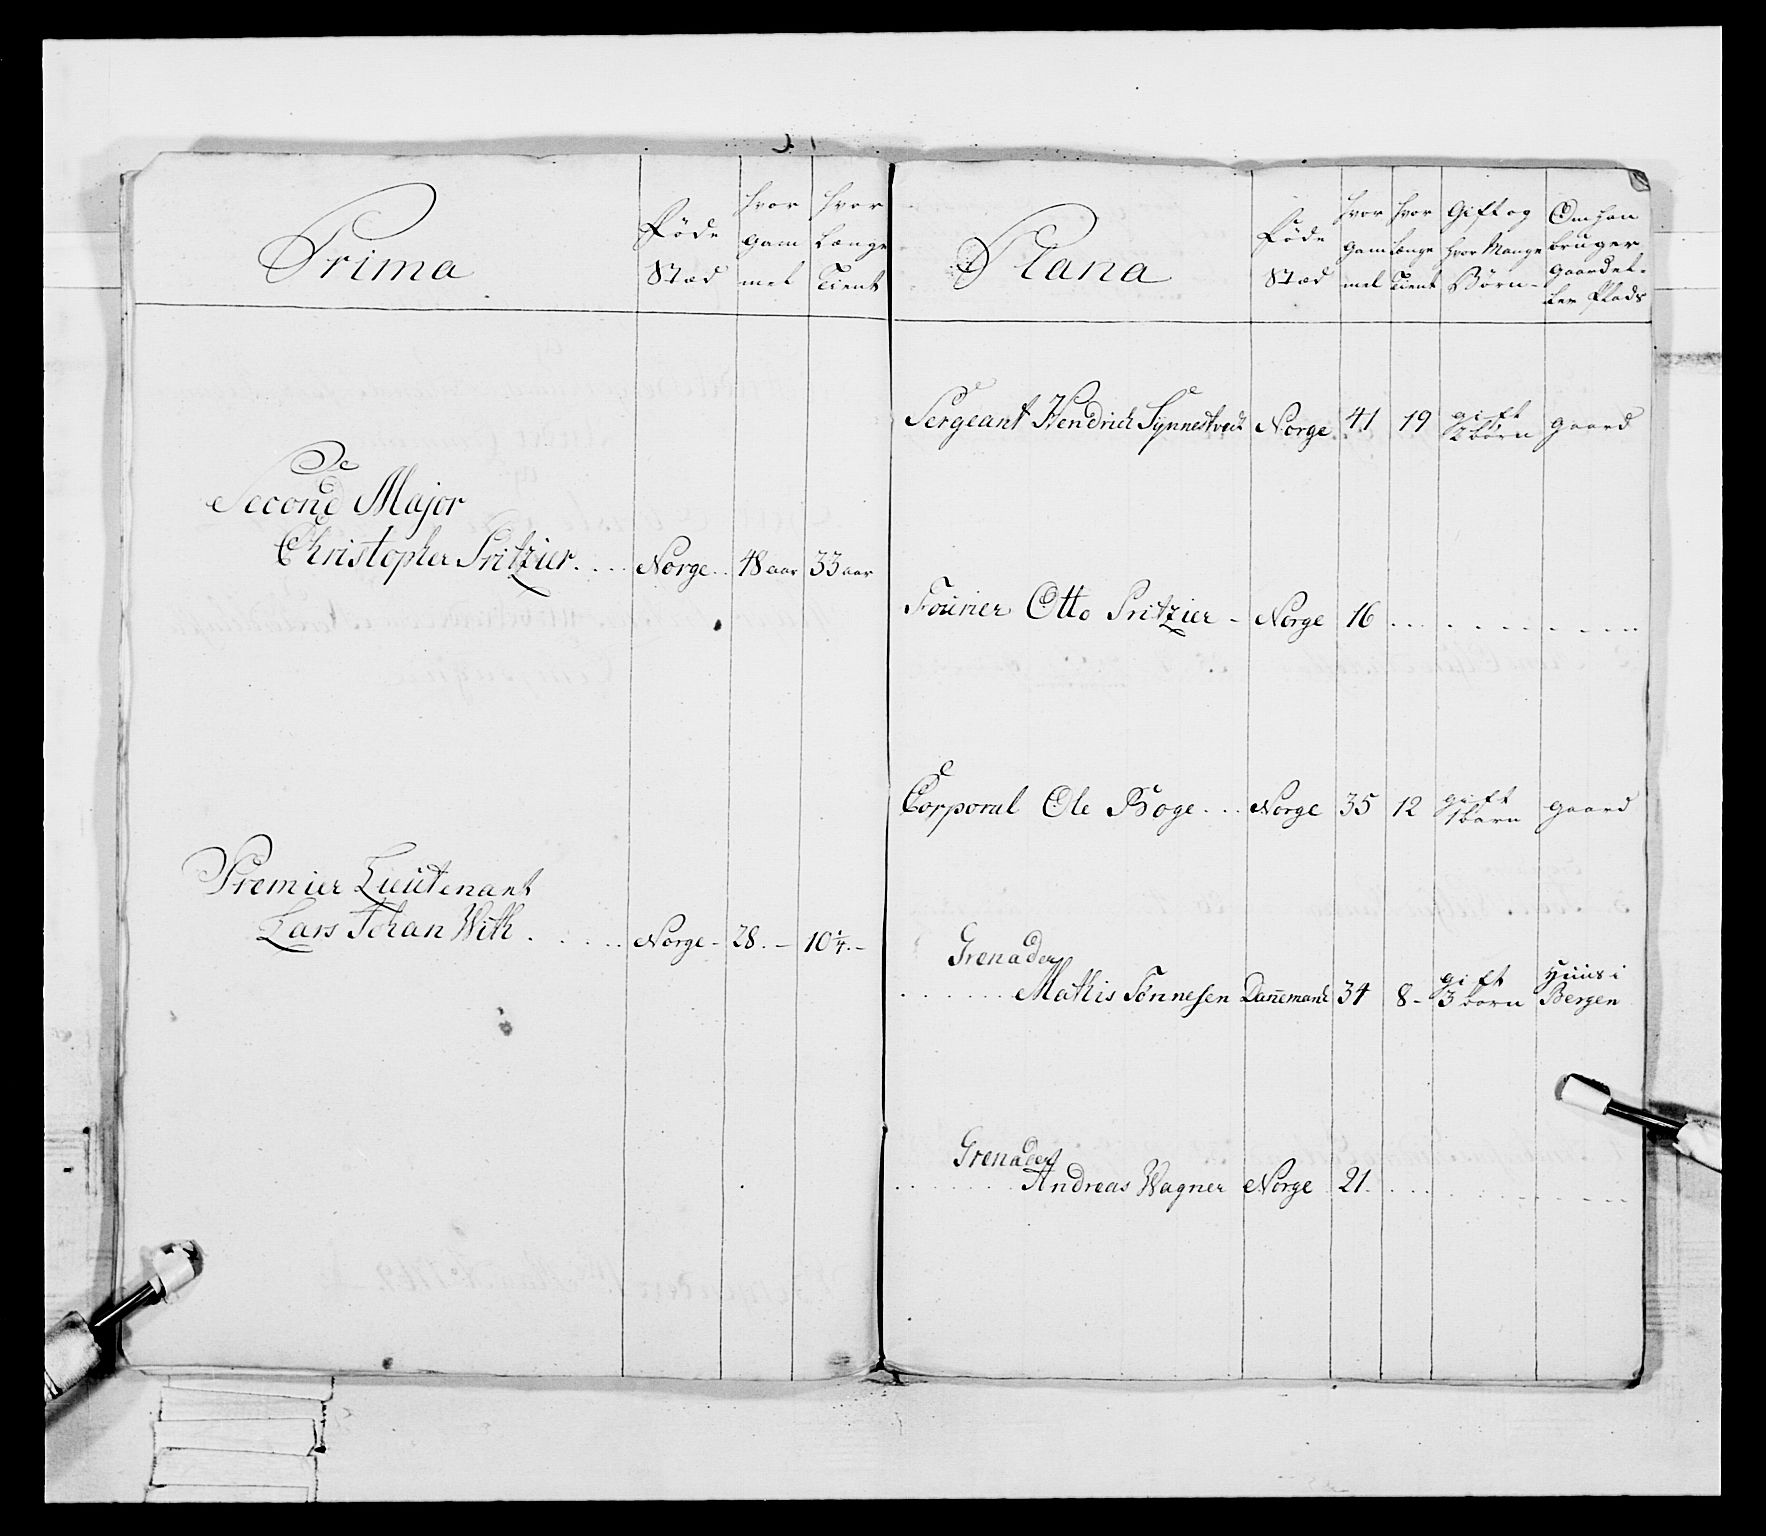 Prima
Føde
Stæd
hvor
gam
mel
hvor
Længe
Tient
Second Major
Christopher Pritzier. . . . Norge. . 48 aar 33 aar
Premier Lieutenant
Lars Johan With . . . . . . Norge - 28. - 10 1/4. -
Plana
Føde
Stæd
hvor
gam
mel
hvor
Længe
Tient
Gift og
hvor Mange
Børn -
Om han
bruger
gaard el-
ler Plads
Sergeant Hendrich Synnestvedt Norge 41 19 gift
2 børn gaard
Fourier Otto Pritzier - Norge 16 . . . . . . . . .
Corporal Ole Boge . . . Norge 35 12 gift
1 barn gaard
Grenader
. . . . . . . Mathis Tønnesen Dannemark 34 8 - gift
3 børn Huus i
Bergen
Grenader
. . . . . . . Andreas Wagner Norge 21. . . . . . . . . .